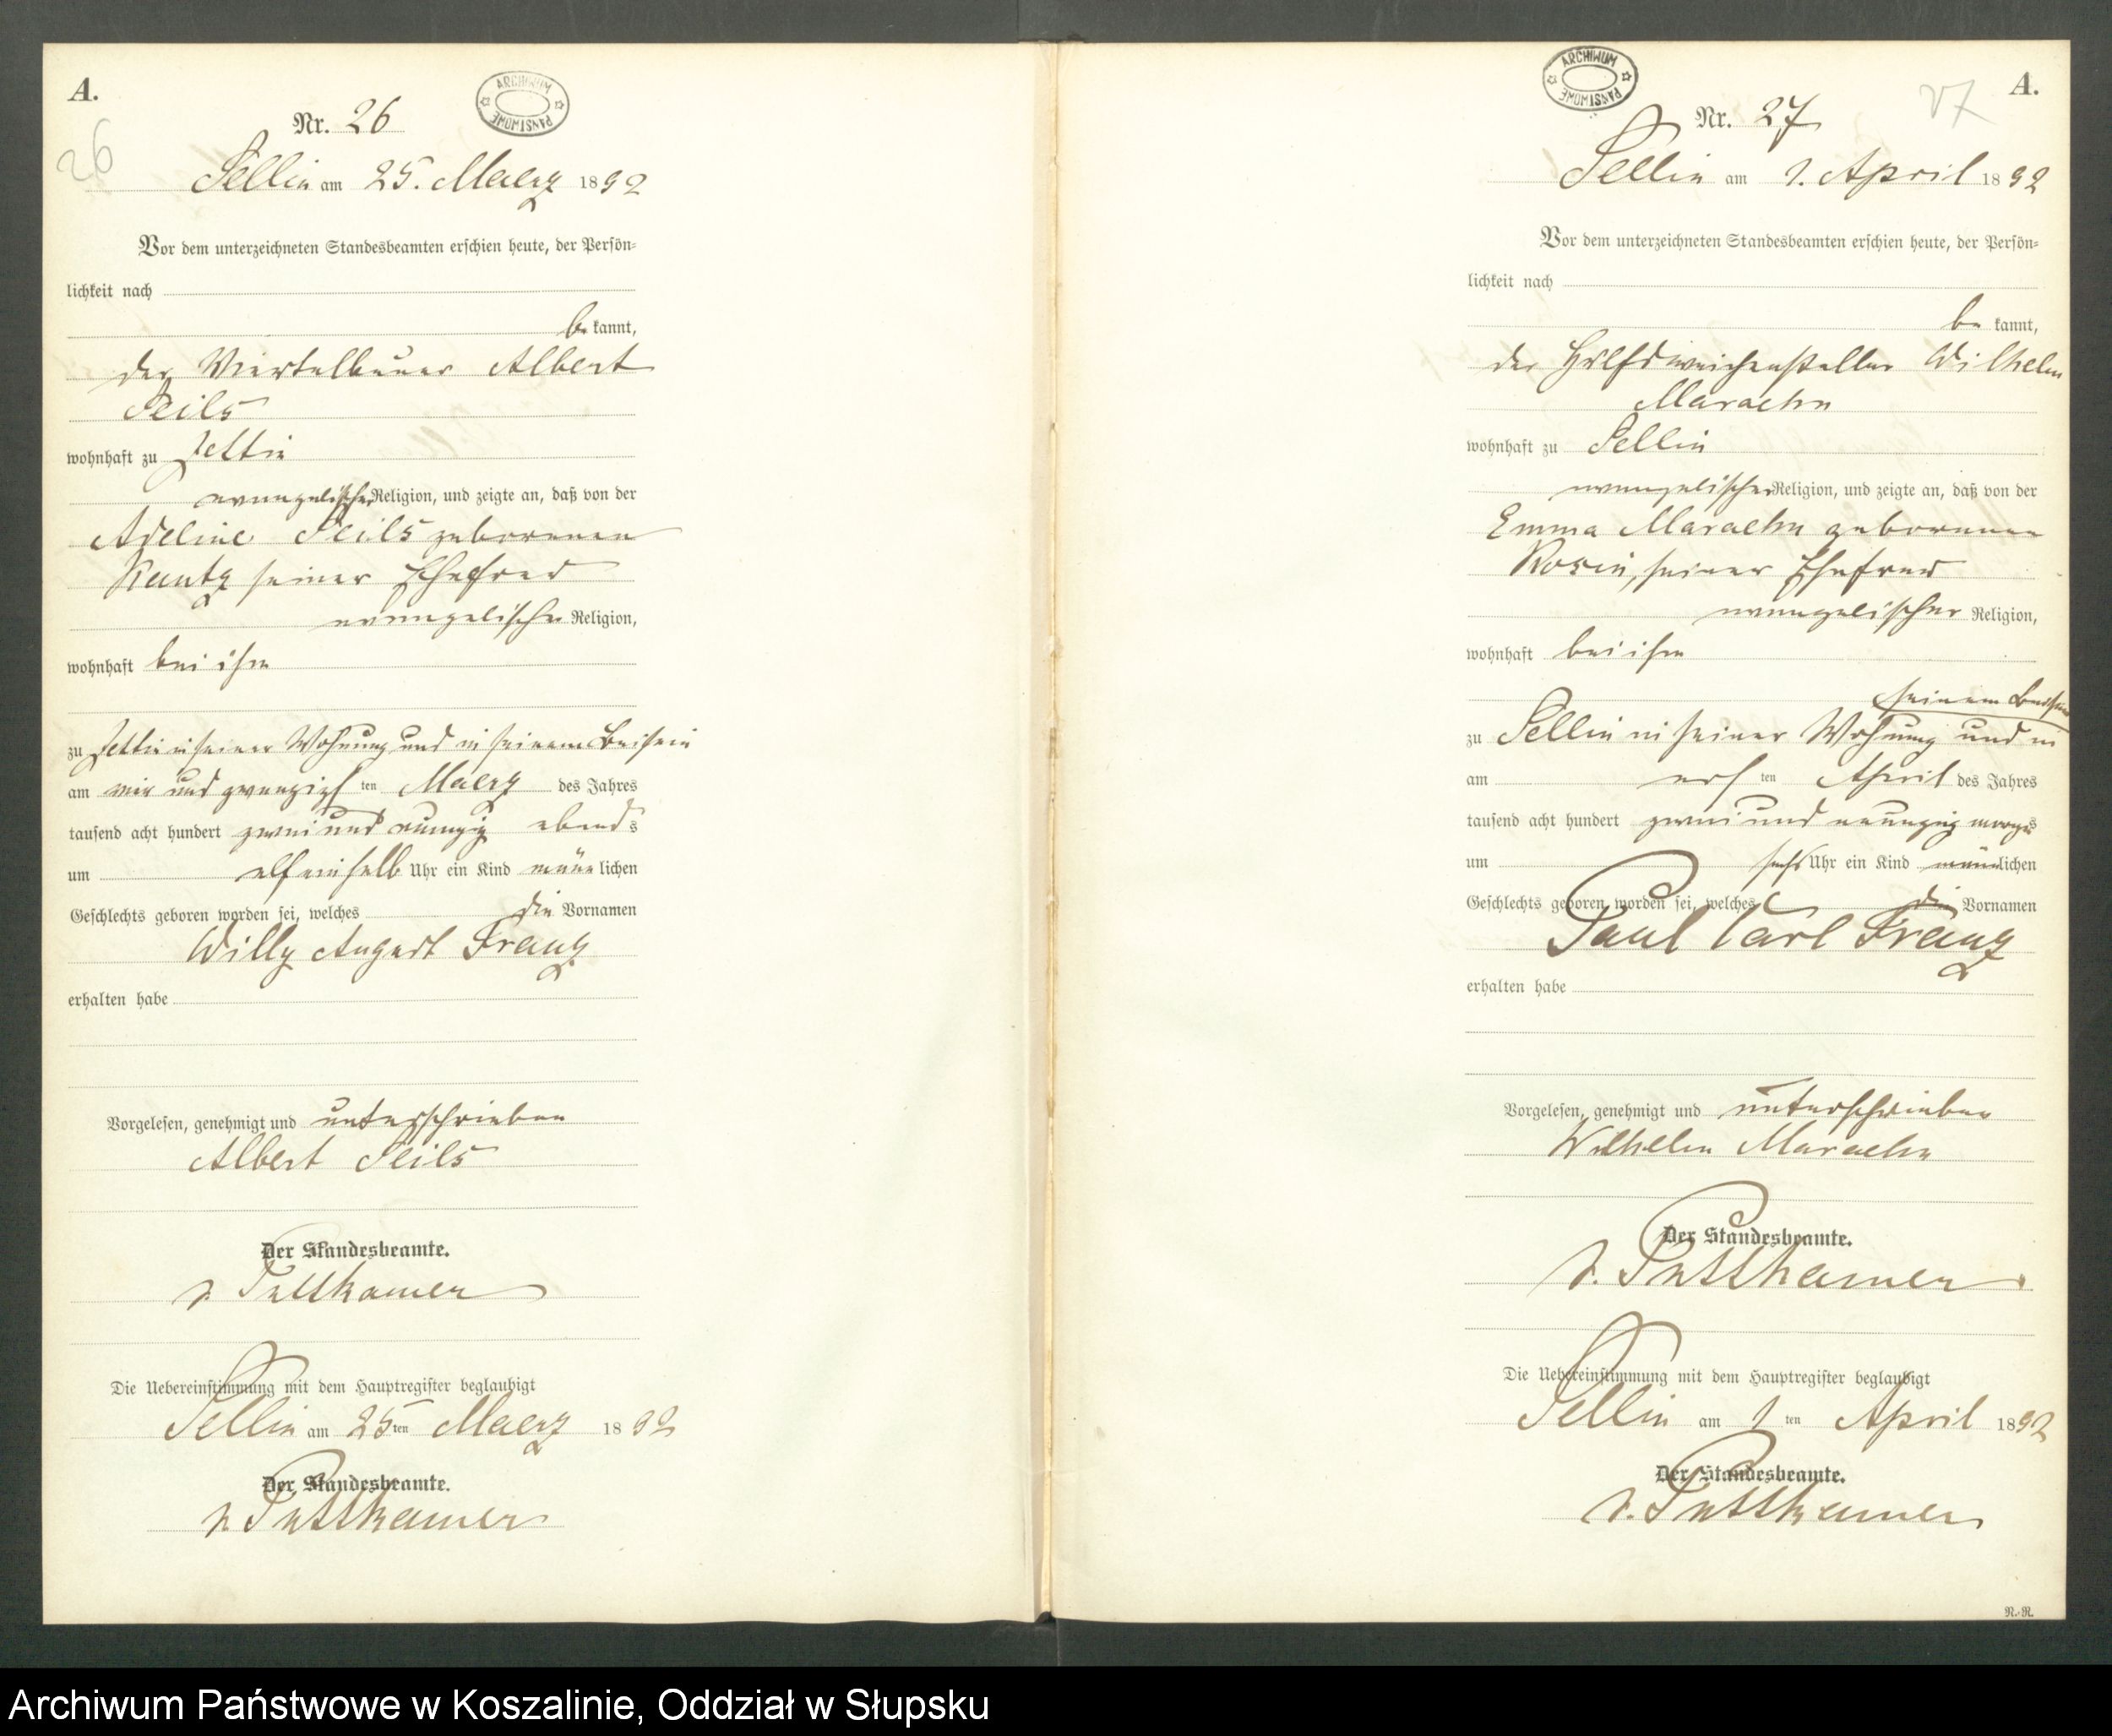 A.
Nr. 26
ARCHIWUM PAŃSTWOWE
26
Sellin am 25. Maerz 1892
Vor dem unterzeichneten Standesbeamten erschien heute, der Persön-
lichkeit nach
be kannt,
der Viertelbauer Albert
Seils
wohnhaft zu Zettin
evangelischer Religion, und zeigte an, daß von der
Adeline Seils geborenen
Kautz seiner Ehefrau
evangelischer Religion,
wohnhaft bei ihm
zu Zettin in seiner Wohnung und in seinem Beisein
am vier und zwanzigsten Maerz des Jahres
tausend acht hundert zwei und neunzig abends
um elf einhalb Uhr ein Kind männlichen
Geschlechts geboren worden sei, welches die Vornamen
Willy August Franz
erhalten habe
Vorgelesen, genehmigt und unterschrieben
Albert Seils
Der Standesbeamte.
v. Puttkamer
Die Uebereinstimmung mit dem Hauptregister beglaubigt
Sellin am 25ten Maerz 1892
Der Standesbeamte.
v. Puttkamer
ARCHIWUM PAŃSTWOWE
27
A.
Nr. 27
Sellin am 1. April 1892
Vor dem unterzeichneten Standesbeamten erschien heute, der Persön-
lichkeit nach
be kannt,
der Hülfsweichensteller Wilhelm
Maraehn
wohnhaft zu Sellin
evangelischer Religion, und zeigte an, daß von der
Emma Maraehn geborenen
Rosin, seiner Ehefrau
evangelischer Religion,
wohnhaft bei ihm
seinem Beisein
zu Sellin in seiner Wohnung und in
am ersten April des Jahres
tausend acht hundert zwei und neunzig morgens
um sechs Uhr ein Kind männlichen
Geschlechts geboren worden sei, welches die Vornamen
Paul Carl Franz
erhalten habe
Vorgelesen, genehmigt und unterschrieben
Wilhelm Maraehn
Der Standesbeamte.
v. Puttkamer
Die Uebereinstimmung mit dem Hauptregister beglaubigt
Sellin am 1ten April 1892
Der Standesbeamte.
v. Puttkamer
R.-R.
Archiwum Państwowe w Koszalinie, Oddział w Słupsku